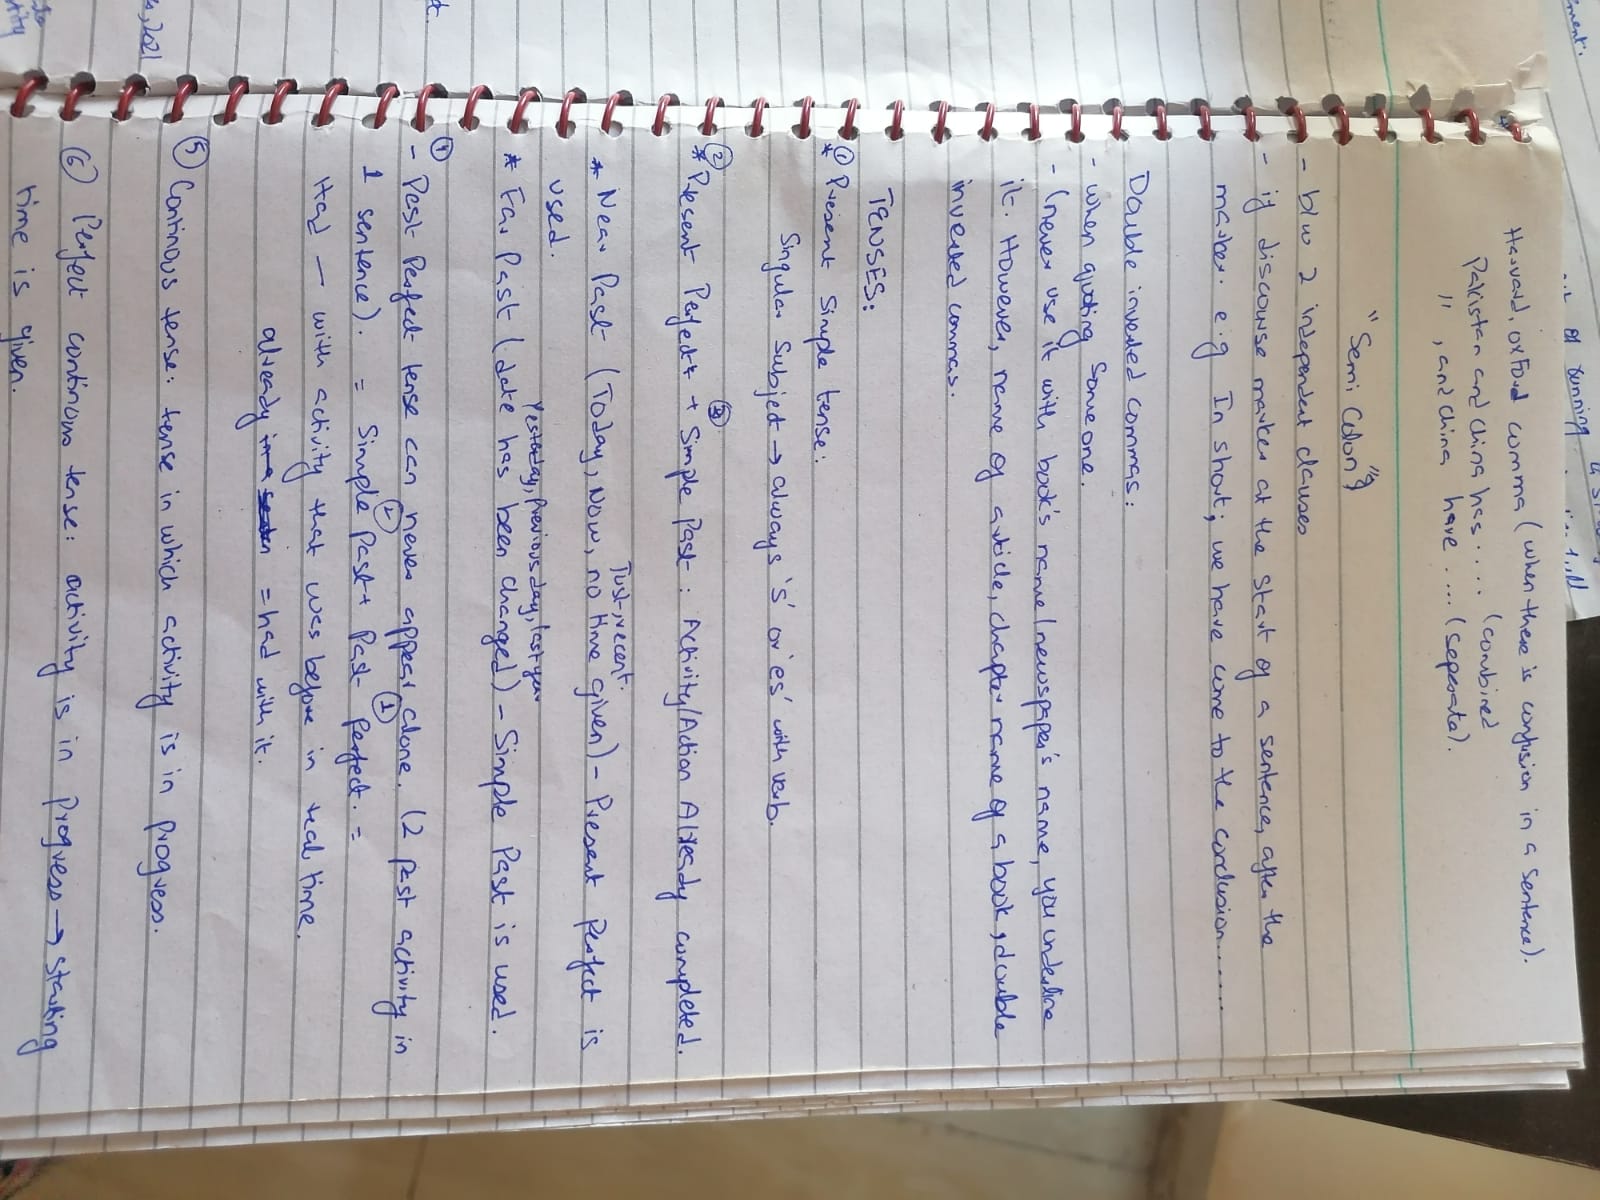 ement.
of running
Harvard, oxFord comma (when there is confusion in a sentence).
Pakistan and China has .... (combined
" , and China have .... (seperate).
"Semi Colon"
- b/w 2 independent clauses
- if discourse marker at the start of a sentence, after the
marker. e.g In short; we have come to the conclusion.......
Double inverted commas:
- when quoting someone.
- (never use it with book's name/newspaper's name, you underline
it. However, name of article, chapter name of a book, double
inverted commas.
TENSES:
① * Present Simple tense:
Singular Subject → always 's' or 'es' with verb.
② * Present Perfect + ③ Simple Past : Activity/Action Already completed.
Just, recent.
* Near Past (Today, Now, no time given) - Present perfect is
used.
Yesterday, Previous day, last year
* Far Past (date has been changed) - Simple Past is used.
④
- Past Perfect tense can never appear alone. (2 past activity in
1 sentence). = Simple ② Past + Past ① perfect. =
Had — with activity that was before in real time.
already = had with it.
⑤ Continous tense: tense in which activity is in progress.
⑥ Perfect continous tense: activity is in progress → starting
time is given.
,2021